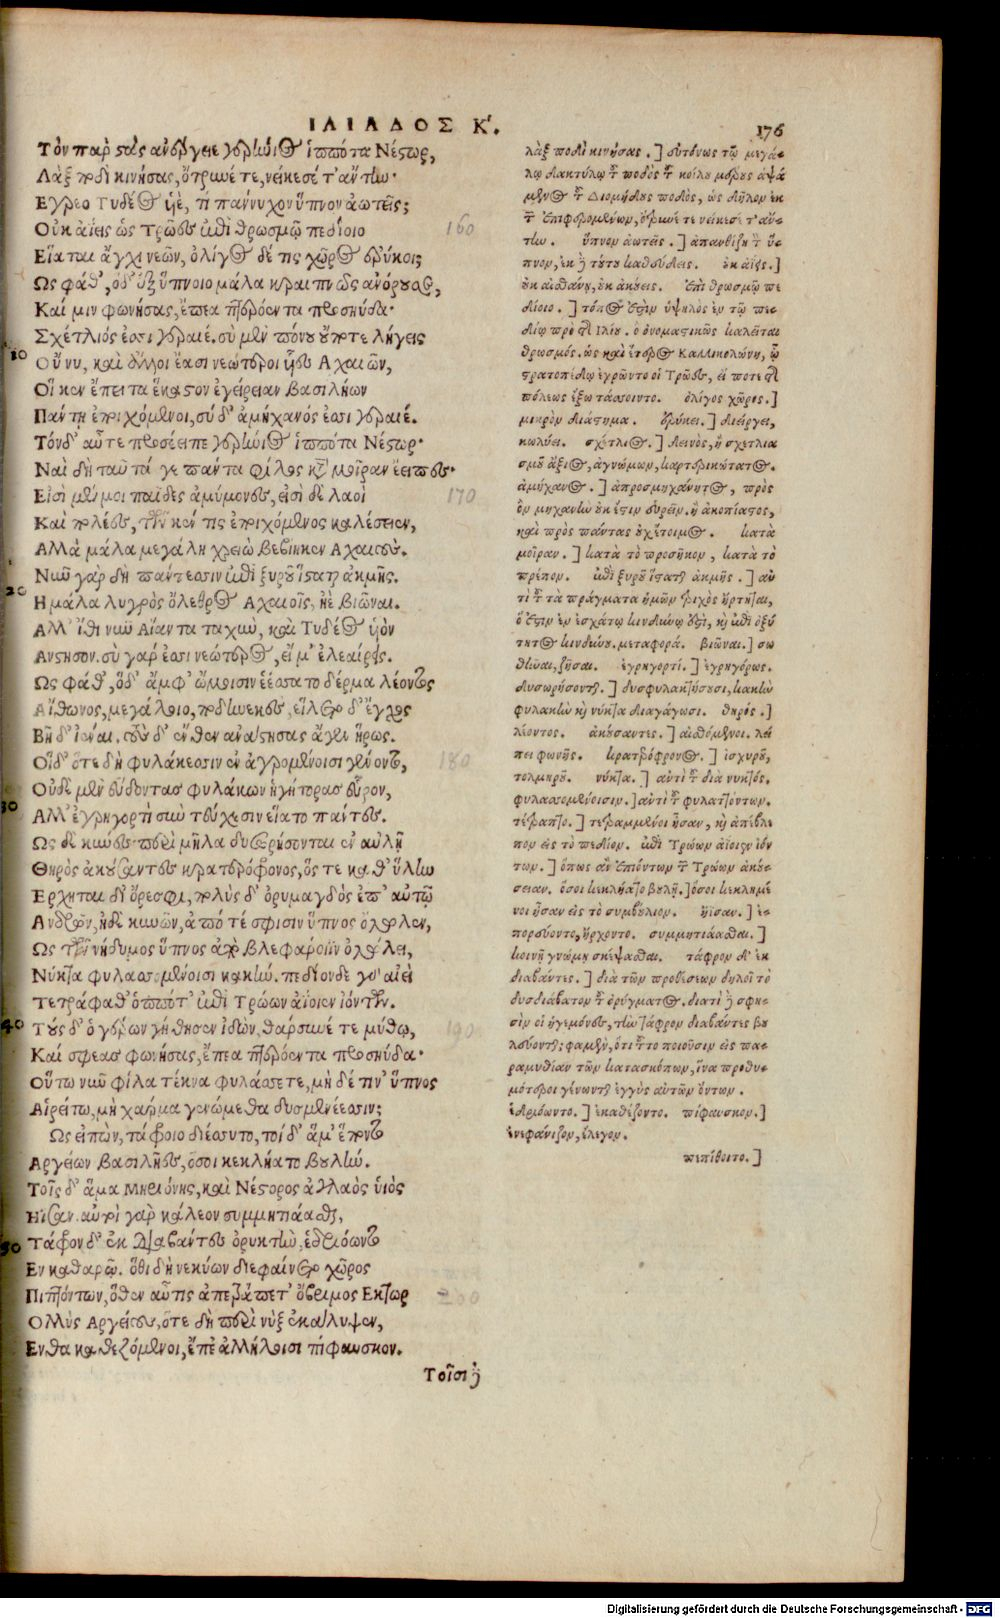 ΙΛΙΑΔΟΣ Κ΄.
176
Τὸν παρ στὰς ἀνέγειρε γερήνιος ἱππότα Νέστωρ,
Λὰξ ποδὶ κινήσας, ὄτρυνέ τε, νείκεσέ τ' ἄντην·
Εγρεο Τυδέος υἱὲ, τί πάννυχον ὕπνον ἀωτεῖς;
Οὐκ ἀίεις ὡς Τρῶες ἐπὶ θρωσμῷ πεδίοιο
160
Εἵαται ἄγχι νεῶν, ὀλίγος δέ τις χῶρος ἐρύκει;
Ως φάθ', ὁ δ' ἐξ ὕπνοιο μάλα κραιπνῶς ἀνόρουσε,
Καί μιν φωνήσας, ἔπεα πτερόεντα προσηύδα·
Σχέτλιός ἐσσι γεραιέ. σὺ μὲν πόνου οὔποτε λήγεις
10
Οὔ νυ, καὶ ἄλλοι ἔασι νεώτεροι υἷες Αχαιῶν,
Οἵ κεν ἔπειτα ἕκαστον ἐγείρειαν βασιλήων
Πάντῃ ἐποιχόμενοι, σὺ δ' ἀμήχανός ἐσσι γεραιέ.
Τόνδ' αὖτε προσέειπε γερήνιος ἱππότα Νέστωρ·
Ναὶ δὴ ταῦτά γε πάντα φίλος κατὰ μοῖραν ἔειπες·
Εἰσὶ μέν μοι παῖδες ἀμύμονες, εἰσὶ δὲ λαοὶ
170
Καὶ πολέες, τῶν κέν τις ἐποιχόμενος καλέσειεν,
Αλλὰ μάλα μεγάλη χρειὼ βεβίηκεν Αχαιούς.
Νῦν γὰρ δὴ πάντεσσιν ἐπὶ ξυροῦ ἵσταται ἀκμῆς.
20
Η μάλα λυγρὸς ὄλεθρος Αχαιοῖς, ἠὲ βιῶναι.
Αλλ' ἴθι νῦν Αἴαντα ταχὺν, καὶ Τυδέος υἱὸν
Ανστησον. σὺ γάρ ἐσσι νεώτερος, εἴ μ' ἐλεαίρεις.
Ως φάθ', ὁ δ' ἀμφ' ὤμοισιν ἑέσσατο δέρμα λέοντος
Αἴθωνος, μεγάλοιο, ποδηνεκὲς, εἵλετο δ' ἔγχος
Βῆ δ' ἰέναι. τοὺς δ' ἔνθεν ἀναστήσας ἄγεν ἥρως.
Οἵδ' ὅτε δὴ φυλάκεσσιν ἐν ἀγρομένοισι γένοντο,
180
Οὐδὲ μὲν εὕδοντας φυλάκων ἡγήτορας εὗρον,
30
Αλλ' ἐγρηγορτὶ σὺν τεύχεσιν εἵατο πάντες.
Ως δὲ κύνες περὶ μῆλα δυσωρήσονται ἐν αὐλῇ
Θηρὸς ἀκούσαντες κρατερόφρονος, ὅς τε καθ' ὕλην
Ερχηται δι' ὄρεσφι, πολὺς δ' ὀρυμαγδὸς ἐπ' αὐτῷ
Ανδρῶν, ἠδὲ κυνῶν, ἀπό τέ σφισιν ὕπνος ὄλωλεν,
Ως τῶν νήδυμος ὕπνος ἀπὸ βλεφάροιϊν ὀλώλει,
Νύκτα φυλασσομένοισι κακήν. πεδίονδε γὰρ αἰεὶ
Τετράφαθ' ὁππότ' ἐπὶ Τρώων ἀΐοιεν ἰόντων.
40
Τοὺς δ' ὁ γέρων γήθησεν ἰδὼν, θάρσυνέ τε μύθῳ,
190
Καί σφεας φωνήσας, ἔπεα πτερόεντα προσηύδα·
Οὕτω νῦν φίλα τέκνα φυλάσσετε, μὴ δέ τιν' ὕπνος
Αἱρείτω, μὴ χάρμα γενώμεθα δυσμενέεσσιν;
Ως εἰπὼν, τάφροιο διέσσυτο, τοὶ δ' ἅμ' ἕποντο
Αργείων βασιλῆες, ὅσοι κεκλήατο βουλήν.
Τοῖς δ' ἅμα Μηριόνης, καὶ Νέστορος ἀγλαὸς υἱὸς
Ηἴσαν. αὐτοὶ γὰρ κάλεον συμμητιάασθαι,
50
Τάφρον δ' ἐκ διαβάντες ὀρυκτὴν, ἑδριόωντο
Εν καθαρῷ. ὅθι δὴ νεκύων διεφαίνετο χῶρος
Πιπτόντων, ὅθεν αὖτις ἀπετράπετ' ὄβριμος Εκτωρ
200
Ολλὺς Αργείους, ὅτε δὴ περὶ νὺξ ἐκάλυψεν,
Ενθα καθεζόμενοι, ἔπε' ἀλλήλοισι πίφαυσκον.
Τοῖσι δὲ
λὰξ ποδὶ κινήσας.] εὐτόνως τῷ μεγά-
λῳ δακτύλῳ τοῦ ποδὸς τοῦ κοίλου μέρους ἁψά
μενος τοῦ Διομήδους ποδὸς, ὡς δῆλον ἐκ
τοῦ ἐπιφερομένου, ὄτρυνέ τε νείκεσέ τ' ἄν-
την. ὕπνον ἀωτεῖς.] ἀπανθίζῃ τὸν ὕ-
πνον, ἐκ δὲ τούτου καθεύδεις. οὐκ ἀΐεις.]
οὐκ αἰσθάνῃ, οὐκ ἀκούεις. ἐπὶ θρωσμῷ πε
δίοιο.] τόπος ἐστὶν ὑψηλὸς ἐν τῷ πε-
δίῳ πρὸ τῆς Ιλίου. ὁ ὀνομαστικῶς καλεῖται
θρωσμός. ὡς καὶ ἕτερος Καλλικολώνη, ᾧ
στρατοπέδῳ ἐχρῶντο οἱ Τρῶες, εἴ ποτε τῆς
πόλεως ἔξω τάσσοιντο. ὀλίγος χῶρος.]
μικρὸν διάστημα. ἐρύκει.] διείργει,
κωλύει. σχέτλιος.] δεινὸς, ἢ σχετλια
σμοῦ ἄξιος, ἀγνώμων, καρτερικώτατος.
ἀμήχανος.] ἀπροσμηχάνητος, πρὸς
ὃν μηχανὴν οὐκ ἔστιν εὑρεῖν. ἢ ἀκοπίαστος,
καὶ πρὸς πάντας εὐχέτοιμος. κατὰ
μοῖραν.] κατὰ τὸ προσῆκον, κατὰ τὸ
πρέπον. ἐπὶ ξυροῦ ἵσταται ἀκμῆς.] ἀν
τὶ τοῦ τὰ πράγματα ἡμῶν τριχὸς ἤρτηται,
ὅ ἐστιν ἐν ἐσχάτῳ κινδύνῳ ἐστὶ, καὶ ἐπὶ ὀξύ
τητος κινδύνου. μεταφορά. βιῶναι.] σω
θῆναι, ζῆσαι. ἐγρηγορτί.] ἐγρηγόρως.
δυσωρήσονται.] δυσφυλακτήσουσι, κακὴν
φυλακὴν καὶ νύκτα διαγάγωσι. θηρός.]
λέοντος. ἀκούσαντες.] αἰσθόμενοι. λεί
πει φωνῆς. κρατερόφρονος.] ἰσχυροῦ,
τολμηροῦ. νύκτα.] ἀντὶ τοῦ διὰ νυκτός.
φυλασσομένοισιν.] ἀντὶ τοῦ φυλαττόντων.
τέτραπτο.] τετραμμένοι ἦσαν, καὶ ἀπέβλε
πον εἰς τὸ πεδίον. ἐπὶ Τρώων ἀΐοιεν ἰόν
των.] ὅπως ἂν ἐπιόντων τῶν Τρώων ἀκού-
σειαν. ὅσοι κεκλήατο βουλῇ.] ὅσοι κεκλημέ
νοι ἦσαν εἰς τὸ συμβούλιον. ἤϊσαν.] ἐ-
πορεύοντο, ἤρχοντο. συμμητιάασθαι.]
κοινῇ γνώμῃ σκέψασθαι. τάφρον δ' ἐκ
διαβάντες.] διὰ τῶν προθέσεων δηλοῖ τὸ
δυσδιάβατον τοῦ ὀρύγματος. διατί δὲ φησ-
σὶν οἱ ἡγεμόνες, τὴν τάφρον διαβάντες βου
λεύονται; φαμὲν, ὅτι τοῦτο ποιοῦσιν εἰς πα-
ραμυθίαν τῶν κατασκόπων, ἵνα προθυ-
μότεροι γένωνται ἐγγὺς αὐτῶν ὄντων.
ἑδριόωντο.] ἐκαθέζοντο. πίφαυσκον.]
ἐνεφάνιζον, ἔλεγον.
πεπίθοιτο.]
Digitalisierung gefördert durch die Deutsche Forschungsgemeinschaft - DFG